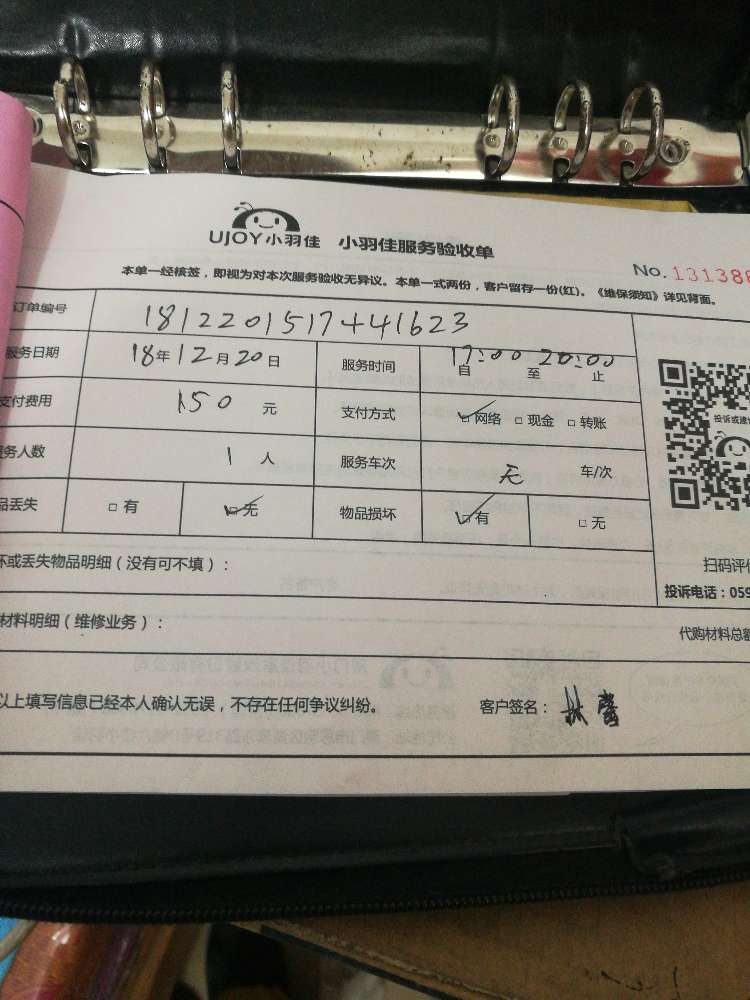 UJOY小羽佳 小羽佳服务验收单
No. 13138
本单一经核签，即视为对本次服务验收无异议。本单一式两份，客户留存一份(红)。《维保须知》详见背面。
订单编号 1812201517441623
服务日期 18年12月20日 服务时间 17:00 20:00
自 至 止
支付费用 150 元 支付方式 网络 现金 转账
务人数 1 人 服务车次 无 车/次
品丢失 有 无 物品损坏 有 无
投诉或建
坏或丢失物品明细（没有可不填）：
扫码评价
投诉电话：059
材料明细（维修业务）： 代购材料总额
以上填写信息已经本人确认无误，不存在任何争议纠纷。 客户签名：